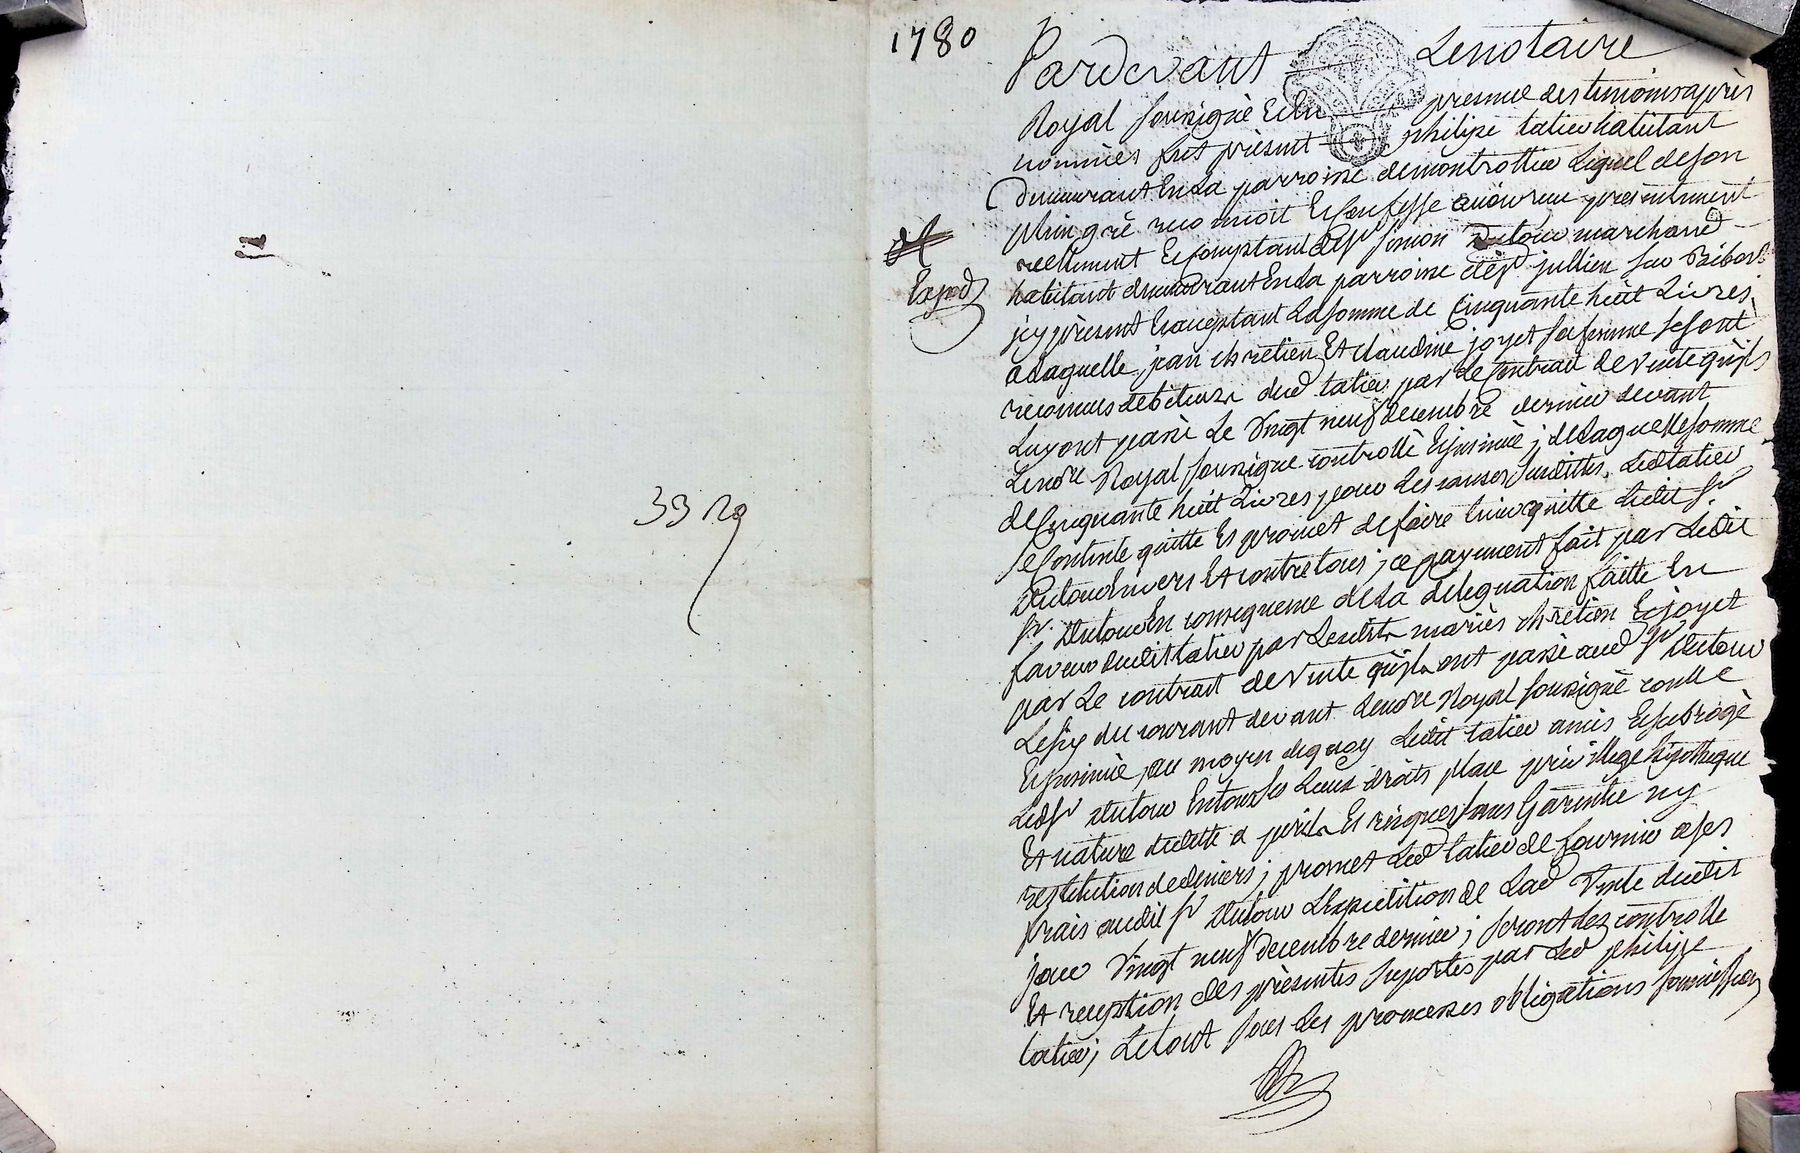 33 Rg
1780
Pardevant Le notaire
Royal soussigné Et en presence des temoins après
nommés fut présent philipe tatier habitant
demeurant En La parroisse de montrottier Lequel de son
plein gré reconnoit Et confesse avoir reçu présentement
reellement Et comptant de sr simon Dutour marchand
habitant demeurant En La parroisse de st jullien sur Bibost
jcy présent Et acceptant La somme de Cinquante huit Livres
a Laquelle jean chretien Et claudine joyet sa femme se sont
reconnus debiteurs dud tatier par Le Contrat de Vente qu'ils
Luy ont passé Le Vingt neuf decembre dernier devant
Le nore Royal soussigné controllé Et insinué ; de Laquelle somme
de Cinquante huit Livres pour Les causes susdittes, Led tatier
se Contente quitte Et promet de faire tenir quitte Ledit sr
Dutour Envers Et contre tous ; ce payement fait par Ledit
sr. Dutour En consequence de La delegation faitte En
faveur dudit tatier par Lesdits mariés chretien Et joyet
par Le contrat de Vente qu'ils ont passé aud sr Dutour
Le six du courant devant Le nore Royal soussigné conllé
Et insinué, au moyen de quoy Ledit tatier a mis Et subrogé
Led sr Dutour En tous ses Lieux droits place privillege hipotheque
Et nature de dette a perils Et risques sans Garentie ny
restitution de deniers ; promet Led tatier de fournir a ses
frais audit sr Dutour L'Expedition de Lad Vente dudit
jour Vingt neuf decembre dernier ; seront Les controlle
Et reception des présentes suportés par Led philipe
tatier ; Le tout sous Les promesses obligations soumissions
Exped